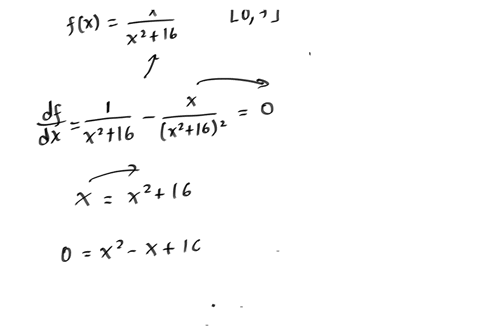 f(x) = x/(x²+16)
df/dx = 1/(x²+16) − x/(x²+16)² = 0
x = x²+16
0 = x² − x + 16